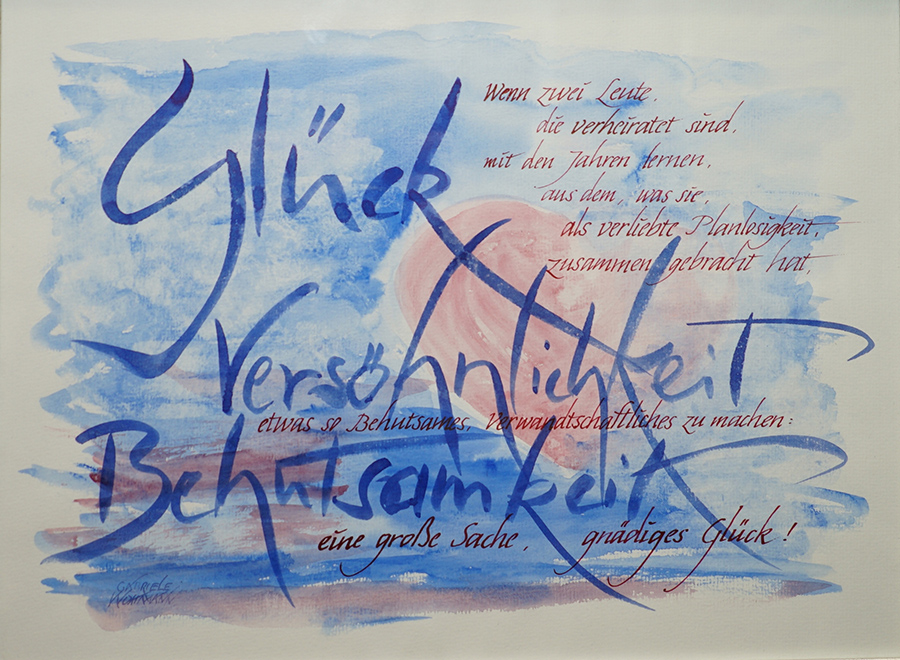 Glück
Wenn zwei Leute,
die verheiratet sind,
mit den Jahren lernen,
aus dem, was sie,
als verliebte Planlosigkeit,
zusammen gebracht hat,
Versöhnlichkeit
etwas so Behutsames, Verwandtschaftliches zu machen:
Behutsamkeit
eine große Sache, gnädiges Glück!
GABRIELE
WOHMANN